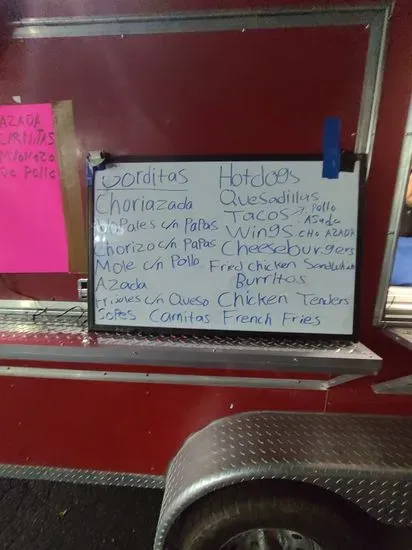 AZADA
CARNITAS
DE POLLO
Gorditas
Choriazada
Nopales c/n Papas
Chorizo c/n Papas
Mole c/n Pollo
Azada
Frijoles c/n Queso
Sopes Carnitas
Hotdogs
Quesadillas
Tacos Pollo
Asada
Wings CHO AZADA
Cheeseburgers
Fried chicken Sandwhich
Burritos
Chicken Tenders
French Fries